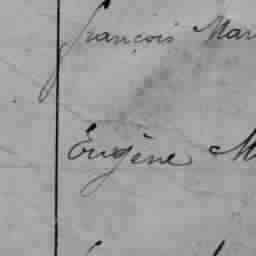 françois Mar
Eugène M